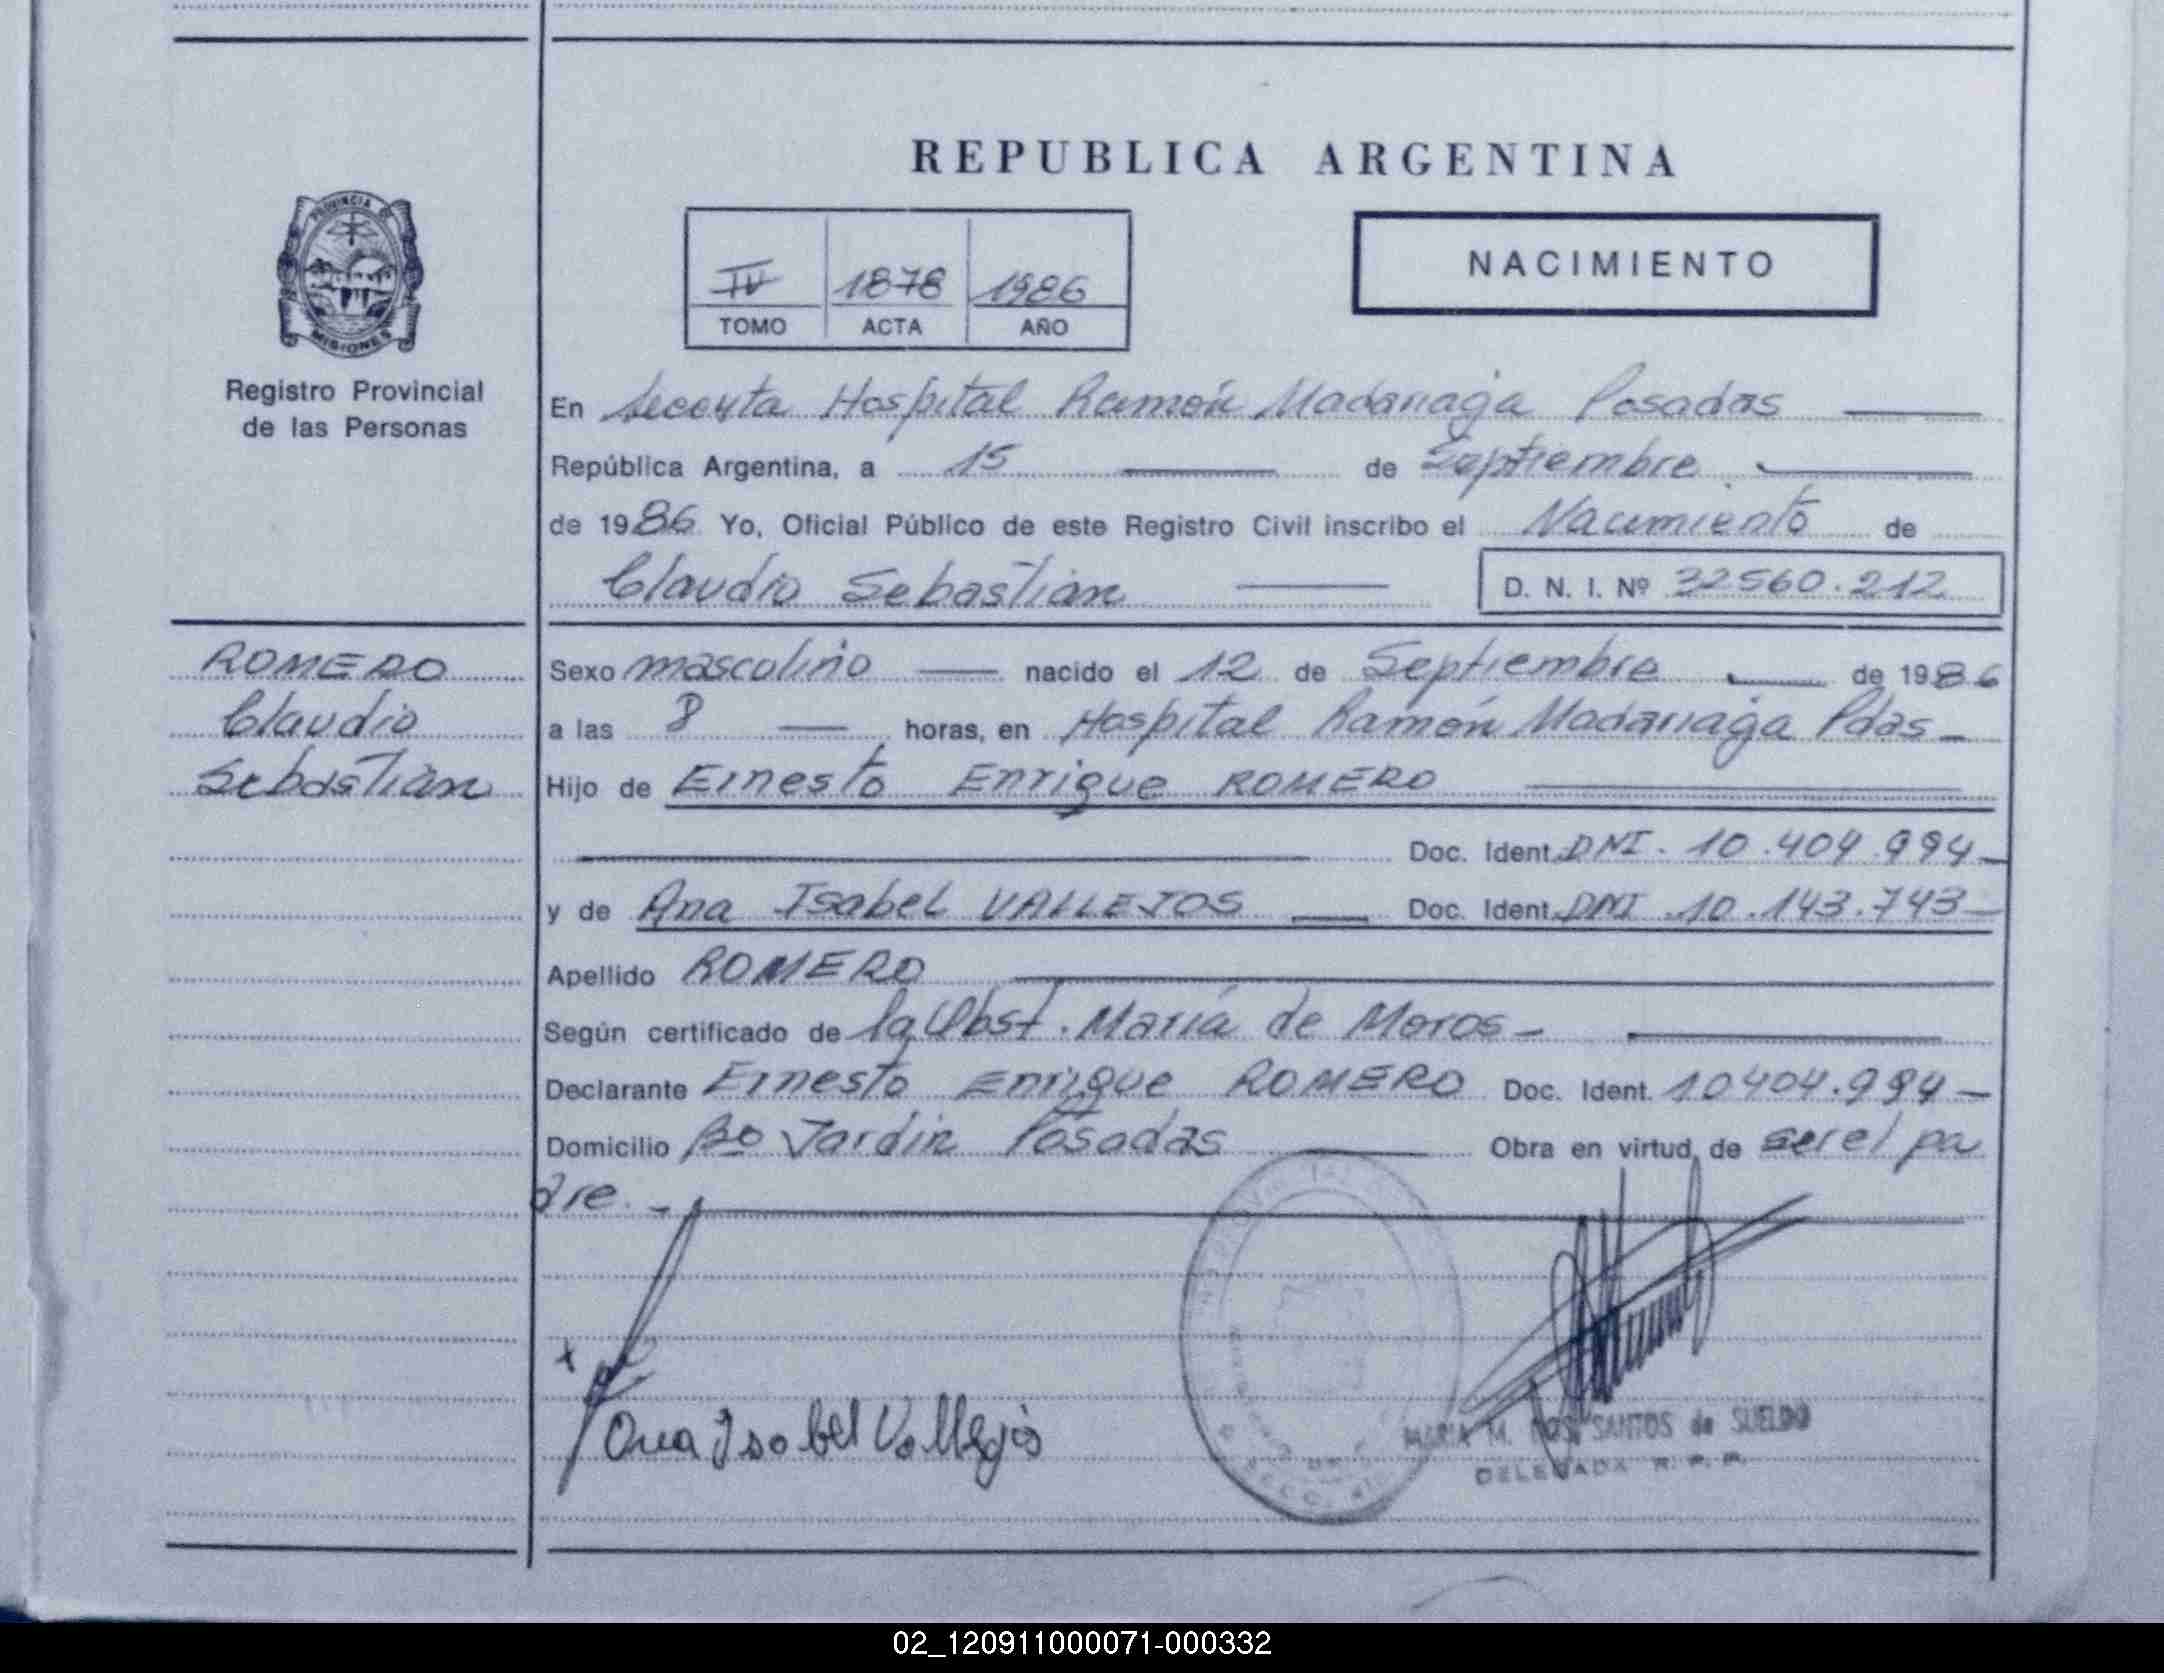 REPUBLICA ARGENTINA
PROVINCIA DE
MISIONES
Registro Provincial
de las Personas
IV 1878 1986
TOMO ACTA AÑO
NACIMIENTO
En Seccuta Hospital Ramón Madariaga Posadas
República Argentina, a 15 de Septiembre
de 1986 Yo, Oficial Público de este Registro Civil inscribo el Nacimiento de
Claudio Sebastian D. N. I. Nº 32560.212
ROMERO
Claudio
Sebastian
Sexo masculino nacido el 12 de Septiembre de 1986
a las 8 horas, en Hospital Ramón Madariaga Pdas
Hijo de Ernesto Enrique ROMERO
Doc. Ident. DNI. 10.404.994
y de Ana Isabel VALLEJOS Doc. Ident. DNI 10.143.743
Apellido ROMERO
Según certificado de la Obst. María de Moros
Declarante Ernesto Enrique ROMERO Doc. Ident. 10404.994
Domicilio Bo Jardin Posadas Obra en virtud de ser el pa
dre.
Ana Isabel Vallejos
MARIA M. DOS SANTOS de SUELDO
DELEGADA R. P. P.
02_120911000071-000332